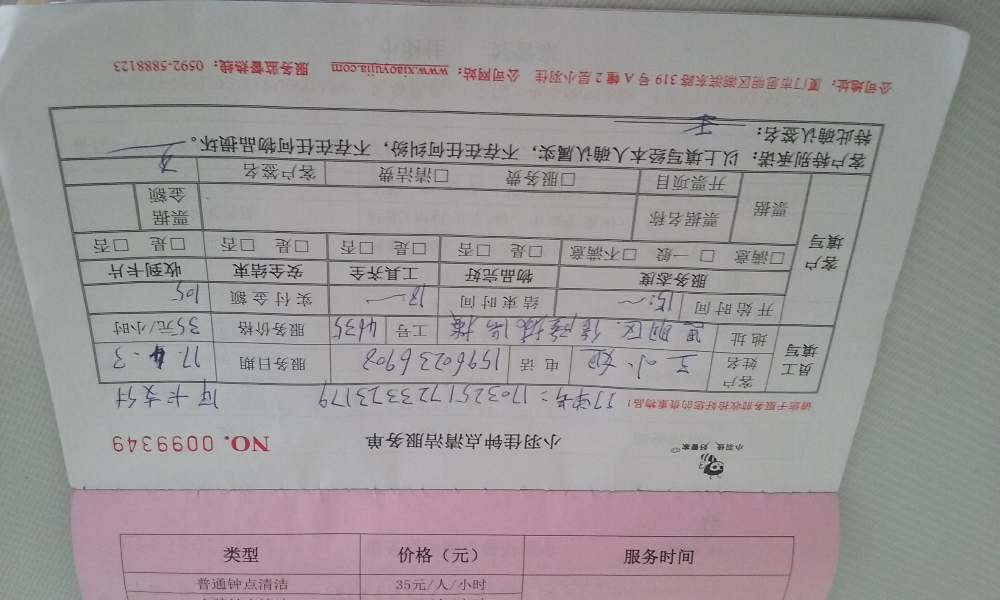 小羽佳、好管家
小羽佳钟点清洁服务单
NO. 0099349
请您于服务前收拾好您的贵重物品！
订单号：1703251723323179
员工填写
客户姓名 王小姐 电话 15960236902 服务日期 17.4.3
地址 工号 4635 服务价格 35元/小时
开始时间 15: 结束时间 18: 实付金额 105
客户填写
服务态度 物品完好 工具齐全 安全结束 收到卡片
□满意 □一般 □不满意 □是 □否 □是 □否 □是 □否 □是 □否
票据 票据名称 票据金额
开票项目 □服务费 □清洁费 客户签名 王
客户特别承诺：以上填写经本人确认属实，不存在任何纠纷，不存在任何物品损坏。
特此确认签名： 王
公司地址：厦门市思明区湖滨东路 319 号 A 幢 2 层小羽佳 公司网站：www.xiaoyujia.com 服务监督热线：0592-5888123
类型 价格（元） 服务时间
普通钟点清洁 35元/人/小时